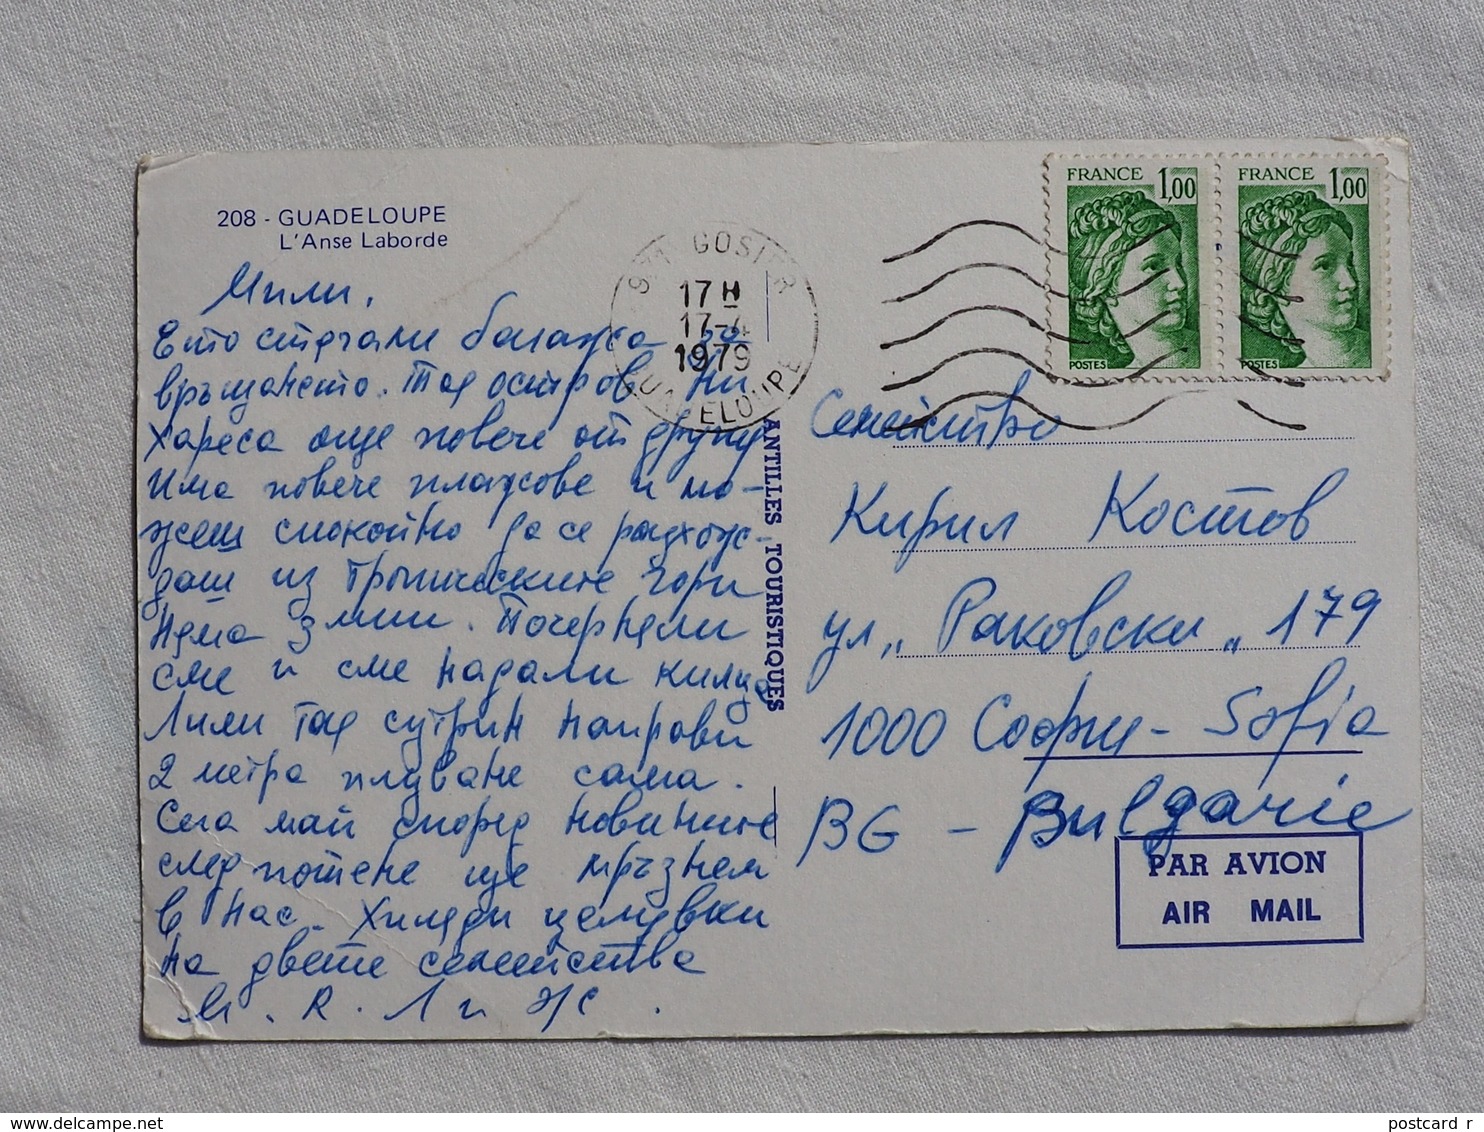 208 - GUADELOUPE
L'Anse Laborde
Мили,
Ето стягали багажа за
връщането. Тоя остров ни
хареса още повече от други
Има повече плажове и мо-
жеш спокойно да се разхож-
даш из тропическите гори
Няма змии. Почернели
сме и сме надали килца
Лили тая сутрин направи
2 метра плуване сама.
Сега май според новините
след потене ще мръзнем
в нас. Хиляди целувки
на двете семейства
М. R. Л и Ж С.
971 GOSIER
17 H
17-4
1979
GUADELOUPE
ANTILLES TOURISTIQUES
FRANCE 1,00
POSTES
FRANCE 1,00
POSTES
Семейство
Кирил Костов
ул „Раковски" 179
1000 София - Sofia
BG - Bulgarie
PAR AVION
AIR MAIL
www.delcampe.net
postcard r